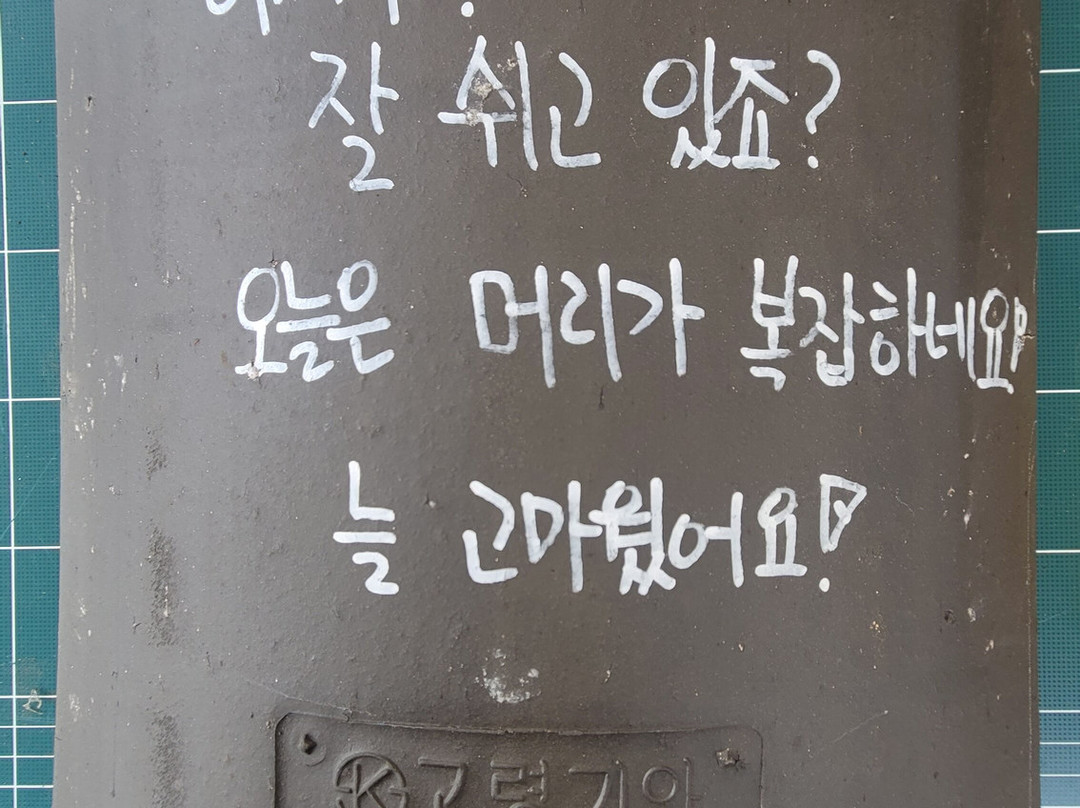 잘 쉬고 있죠?
오늘은 머리가 복잡하네요!
늘 고마웠어요!
고령기와